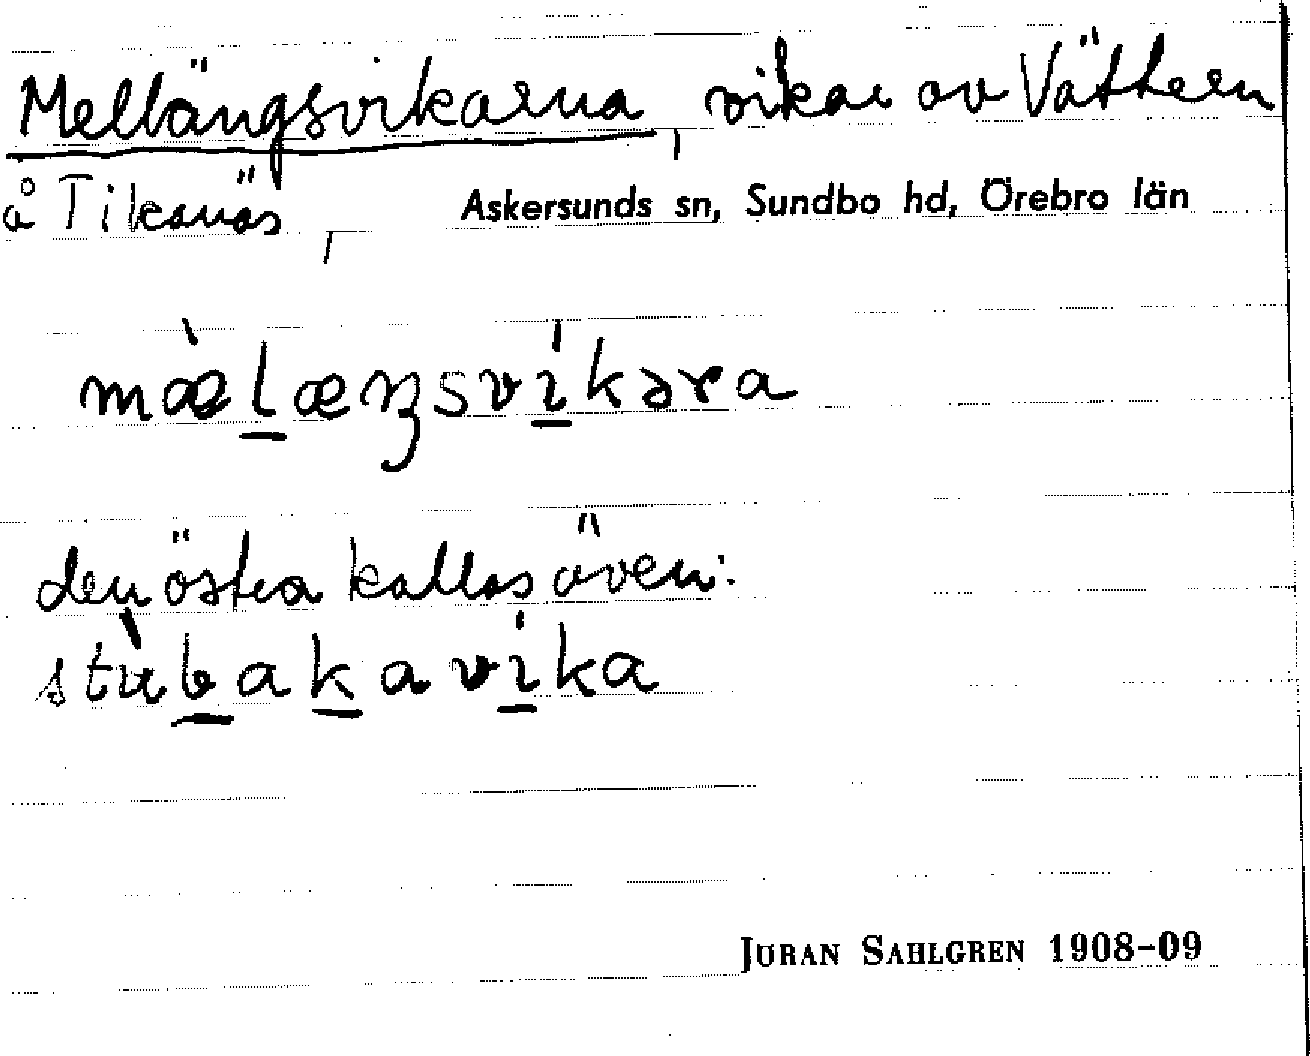 Mellängsvikarna, vikar av Vättern
å Tikanäs, Askersunds sn, Sundbo hd, Örebro län
mæ̀l̲æŋsvi̲kəra
den östra kallas även:
stùb̲ak̲avi̲ka
JÖRAN SAHLGREN 1908-09